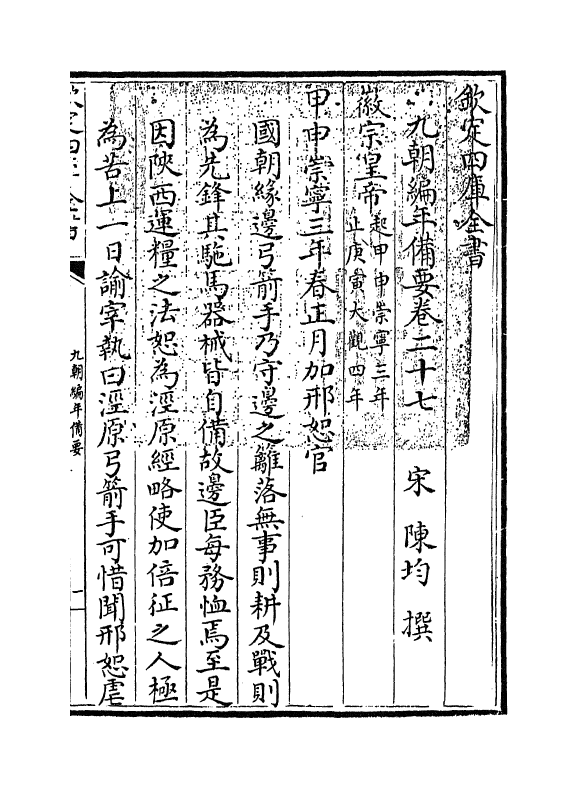 欽定四庫全書
九朝編年備要卷二十七 宋 陳均 撰
徽宗皇帝 起甲申崇寧三年
止庚寅大觀四年
甲申崇寧三年春正月加邢恕官
國朝緣邊弓箭手乃守邊之籬落無事則耕及戰則
為先鋒其駞馬器械皆自備故邊臣每務恤焉至是
因陜西運糧之法恕為涇原經略使加倍征之人極
為苦上一日諭宰執曰涇原弓箭手可惜聞邢恕虐
九朝編年備要